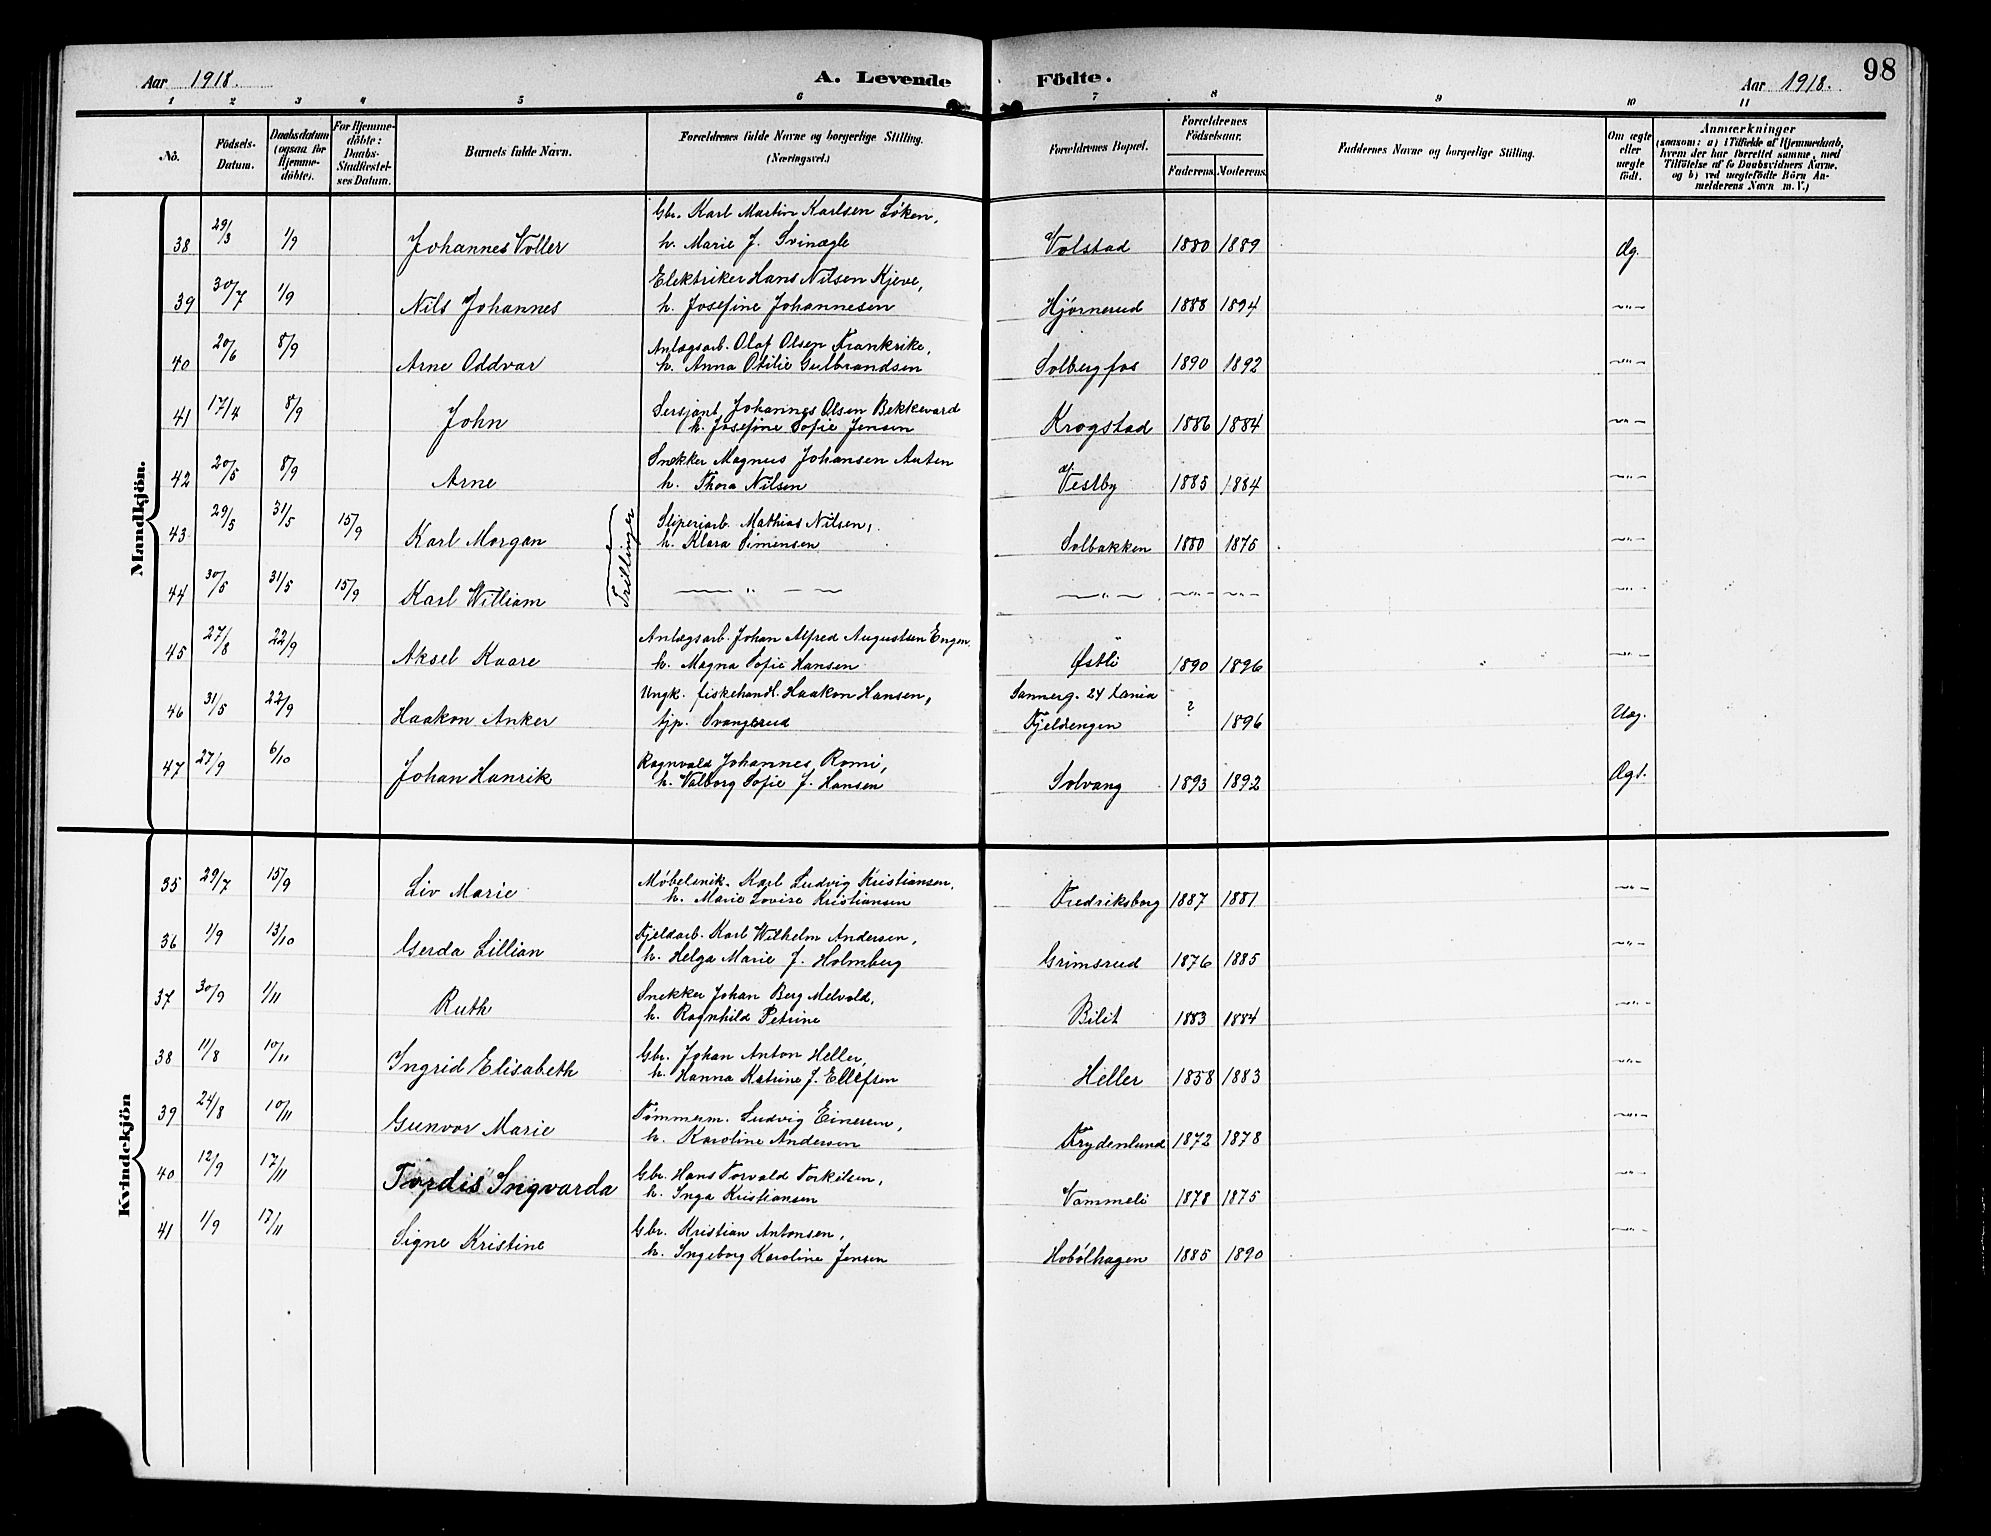 98
Aar 1918. A. Levende Födte. Aar 1918.
1 2 3 4 5 6 7 8 9 10 11
No. Födsels-Datum. Daabsdatum (ogsaa for Hjemme-döbte). For Hjemme-döbte: Daabs-Stadfæstel-ses Datum. Barnets fulde Navn. Forældrenes fulde Navne og borgerlige Stilling. (Næringsvei.) Forældrenes Bopæl. Forældrenes Födselsaar. Faderens. Moderens. Faddernes Navne og borgerlige Stilling. Om ægte eller uægte födt. Anmærkninger (saasom: a) i Tilfælde af Hjemmedaab, hvem der har forrettet samme, med Tilföielse af to Daabsvidners Navne, og b) ved uægtefödte Börn An-melderens Navn m. V.)
Mandkjön.
38 29/3 1/9 Johannes Voller Gbr. Karl Martin Karlsen Løken,
h. Marie J. Svinægle Volstad 1880 1889 Æg.
39 30/7 1/9 Nils Johannes Elektriker Hans Nilsen Kjeve,
h. Josefine Johannesen Hjørnerud 1888 1894 —"—
40 20/6 8/9 Arne Oddvar Anlægsarb. Olaf Olsen Frankrike,
h. Anna Otilie Gulbrandsen Solbergfos 1890 1892 —"—
41 17/4 8/9 John Sersjant Johannes Olsen Bekkevard
h. Josefine Sofie Jensen Krogstad 1886 1884 —"—
42 20/5 8/9 Arne Snekker Magnus Johansen Auten
h. Thora Nilsen Vestby 1885 1884 —"—
43 29/5 31/5 15/9 Karl Morgan Trillinger Sliperiarb. Mathias Nilsen,
h. Klara Simensen Solbakken 1880 1875 —"—
44 30/5 31/5 15/9 Karl William —"— — —"— —"— —"— —"—
45 27/8 22/9 Aksel Kaare Anlægsarb. Johan Alfred Augustsen Engen
h. Magna Sofie Hansen Østli 1890 1896 —"—
46 31/5 22/9 Haakon Anker Ungk. fiskehandl. Haakon Hansen, Sannerg. 24 ?
tjp. Svangerud Fjeldengen 1896 Uæg.
47 27/9 6/10 Johan Hanrik Ragnvald Johannes Romi,
h. Valborg Sofie J. Hansen Solvang 1893 1892 Ægt.
Kvindekjön
35 29/7 15/9 Liv Marie Møbelsnik. Karl Ludvig Kristiansen,
h. Marie Lovise Kristiansen Fredriksborg 1887 1881 —"—
36 1/9 13/10 Gerda Lillian Fjeldarb. Karl Wilhelm Andersen,
h. Helga Marie J. Holmberg Grimsrud 1876 1885 —"—
37 30/9 1/11 Ruth Snekker Johan Berg Melvold,
h. Ragnhild Petrine Bilit 1883 1884 —"—
38 11/8 10/11 Ingrid Elisabeth Gbr. Johan Anton Heller,
h. Hanna Katrine J. Ellefsen Heller 1858 1883 —"—
39 24/8 10/11 Gunvor Marie Tømmerm. Ludvig Einersen,
h. Karoline Andersen Frydenlund 1872 1878 —"—
40 12/9 17/11 Tordis Ingvarda Gbr. Hans Torvald Torkilsen,
h. Inga Kristiansen Vammeli 1878 1875 —"—
41 1/9 17/11 Signe Kristine Gbr. Kristian Antonsen,
h. Ingeborg Karoline Jensen Hobølhagen 1885 1890 —"—